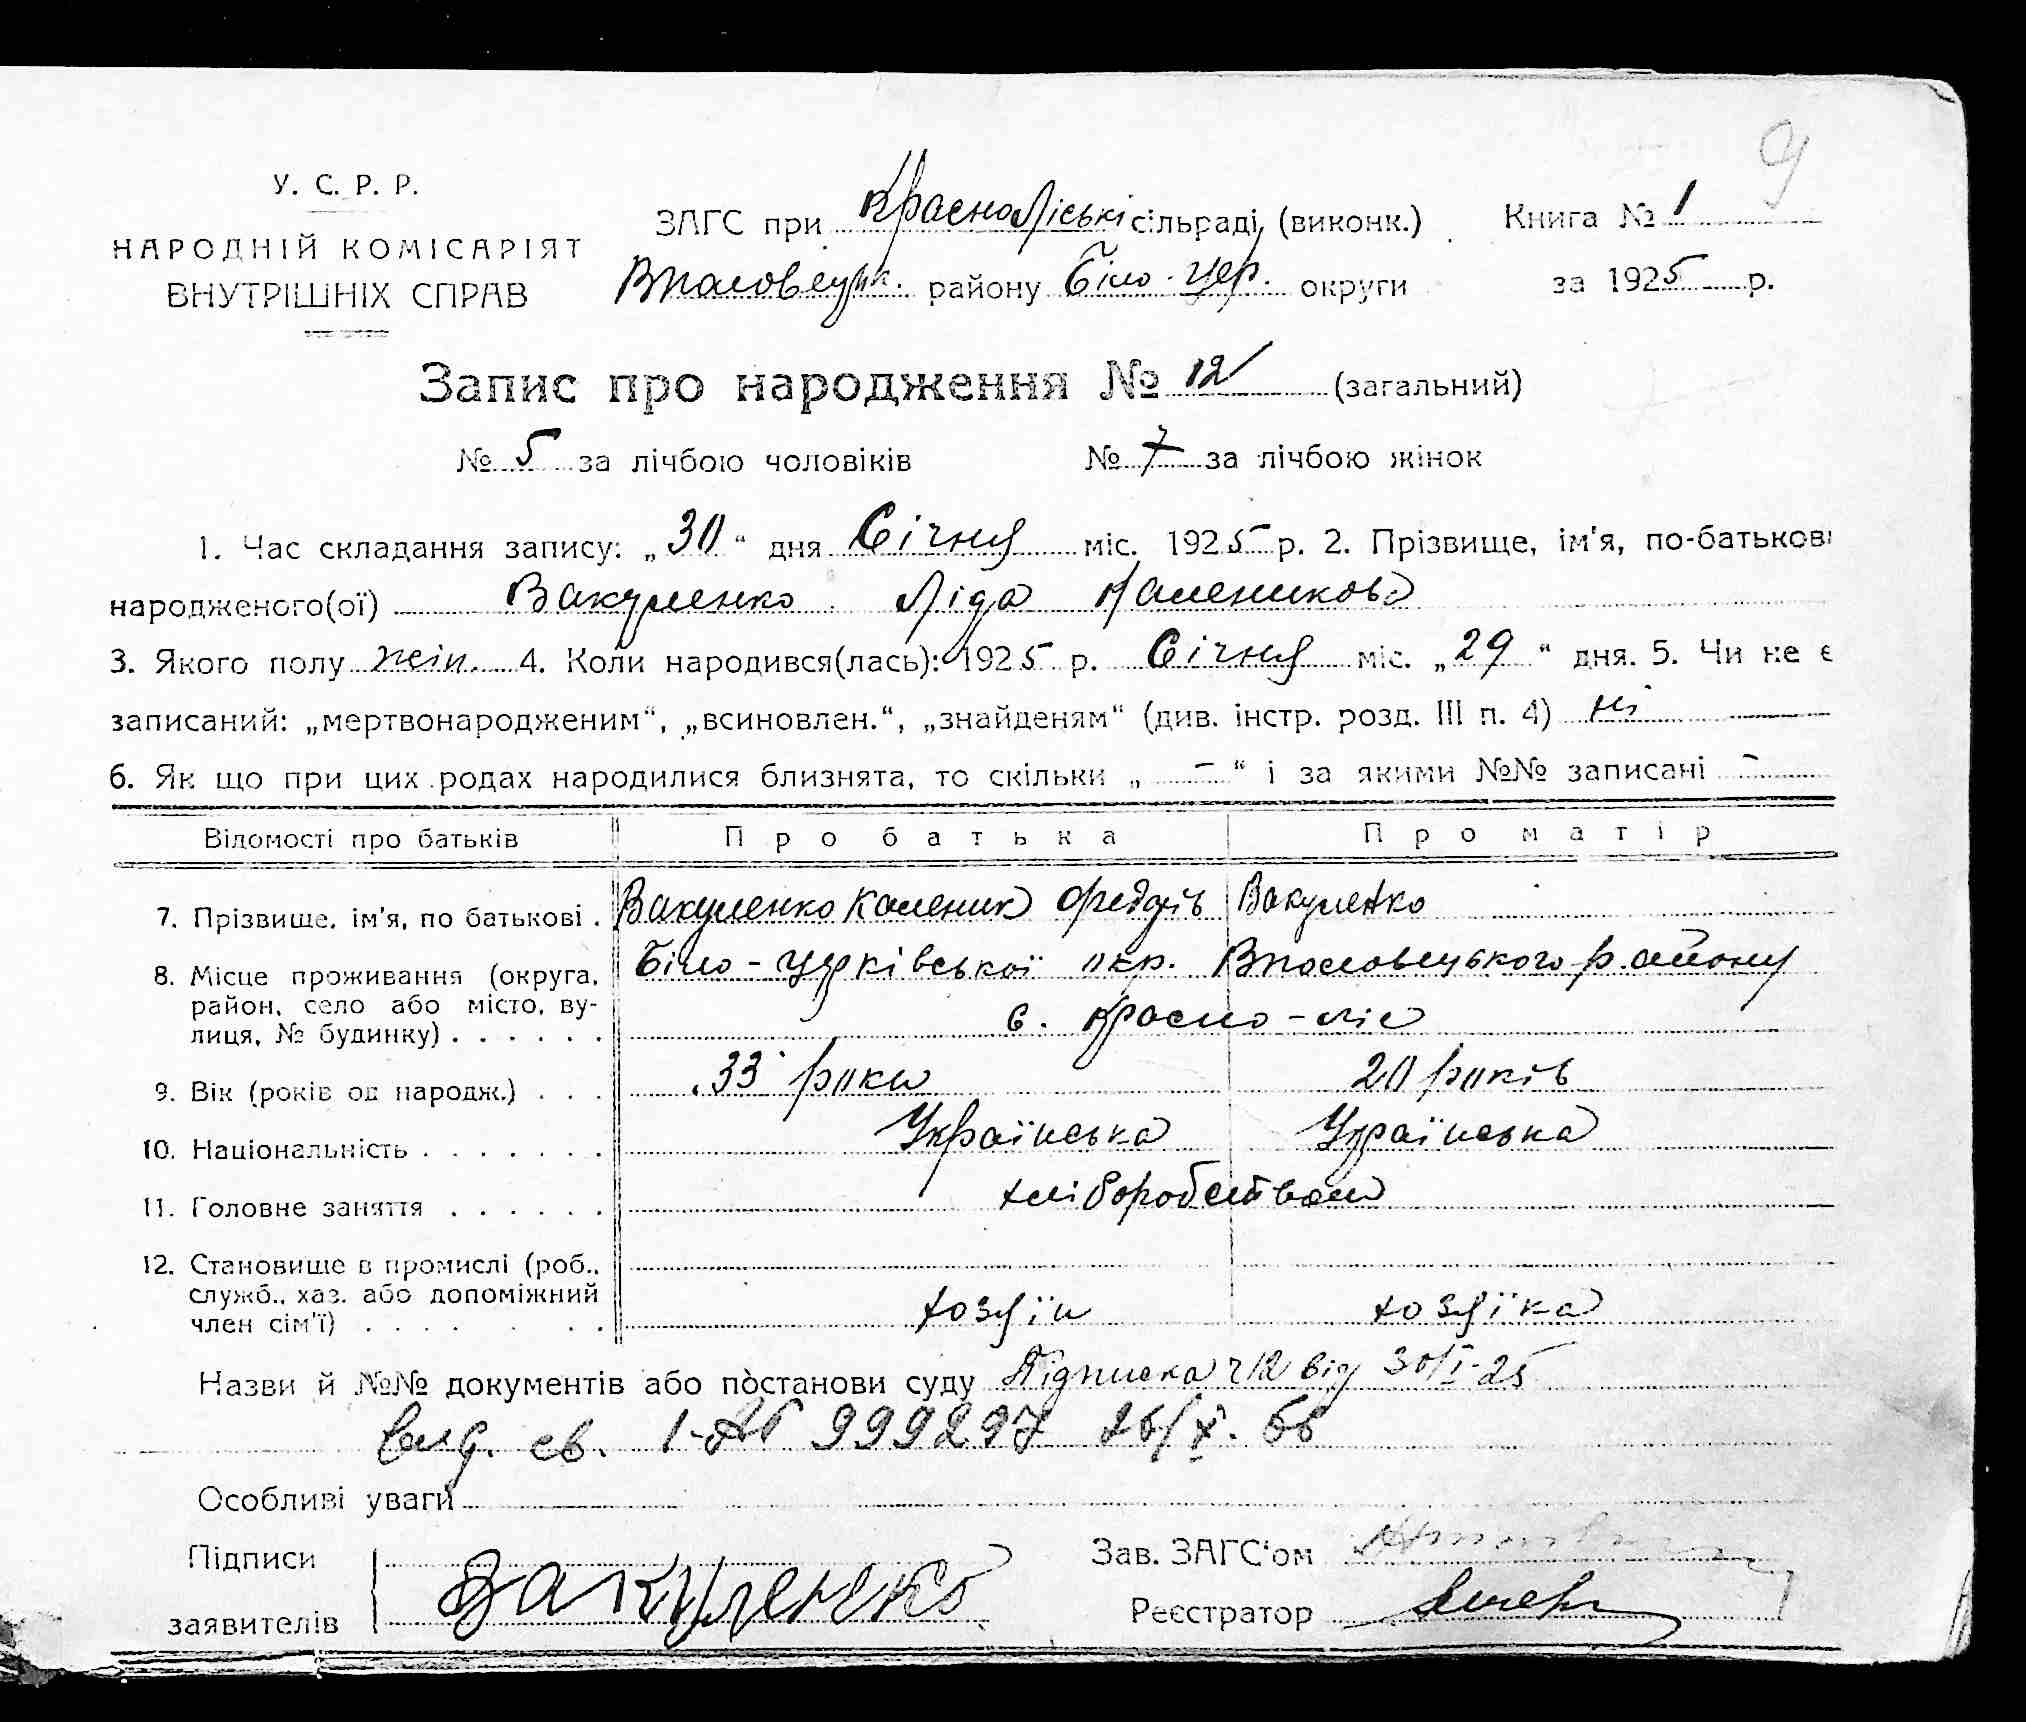 9
У. С. Р. Р.
НАРОДНІЙ КОМІСАРІЯТ
ВНУТРІШНІХ СПРАВ
ЗАГС при Красноліські сільраді, (виконк.) Книга № 1
району Біло-Цер. округи за 1925 р.
Запис про народження № 12 (загальний)
№ 5 за лічбою чоловіків № 7 за лічбою жінок
1. Час складання запису: „30“ дня Січня міс. 1925 р. 2. Прізвище, ім'я, по-батькові
народженого(ої) Вакуленко Ліда Каленикова
3. Якого полу жін. 4. Коли народився(лась): 1925 р. Січня міс. „29“ дня. 5. Чи не є
записаний: „мертвонародженим“, „всиновлен.“, „знайденям“ (див. інстр. розд. III п. 4) ні
6. Як що при цих родах народилися близнята, то скільки „ - “ і за якими №№ записані -
Відомості про батьків Про батька Про матір
7. Прізвище, ім'я, по батькові . Вакуленко Каленик Федорів Вакуленко
8. Місце проживання (округа, Біло-Церківської окр. району
район, село або місто, ву- с. Красно-ліс
лиця, № будинку) . . . . . .
9. Вік (років од народж.) . . . 33 роки 20 років
10. Національність . . . . . . . Українська Українська
11. Головне заняття . . . . . . хліборобством
12. Становище в промислі (роб.,
служб., хаз. або допоміжний хозяїн хозяїка
член сім'ї) . . . . . . .
Назви й №№ документів або постанови суду Підписка ч12 від 30/I-25
выд. св. 999297 26/X. 66
Особливі уваги
Підписи Зав. ЗАГС'ом
заявителів Вакуленко Реєстратор